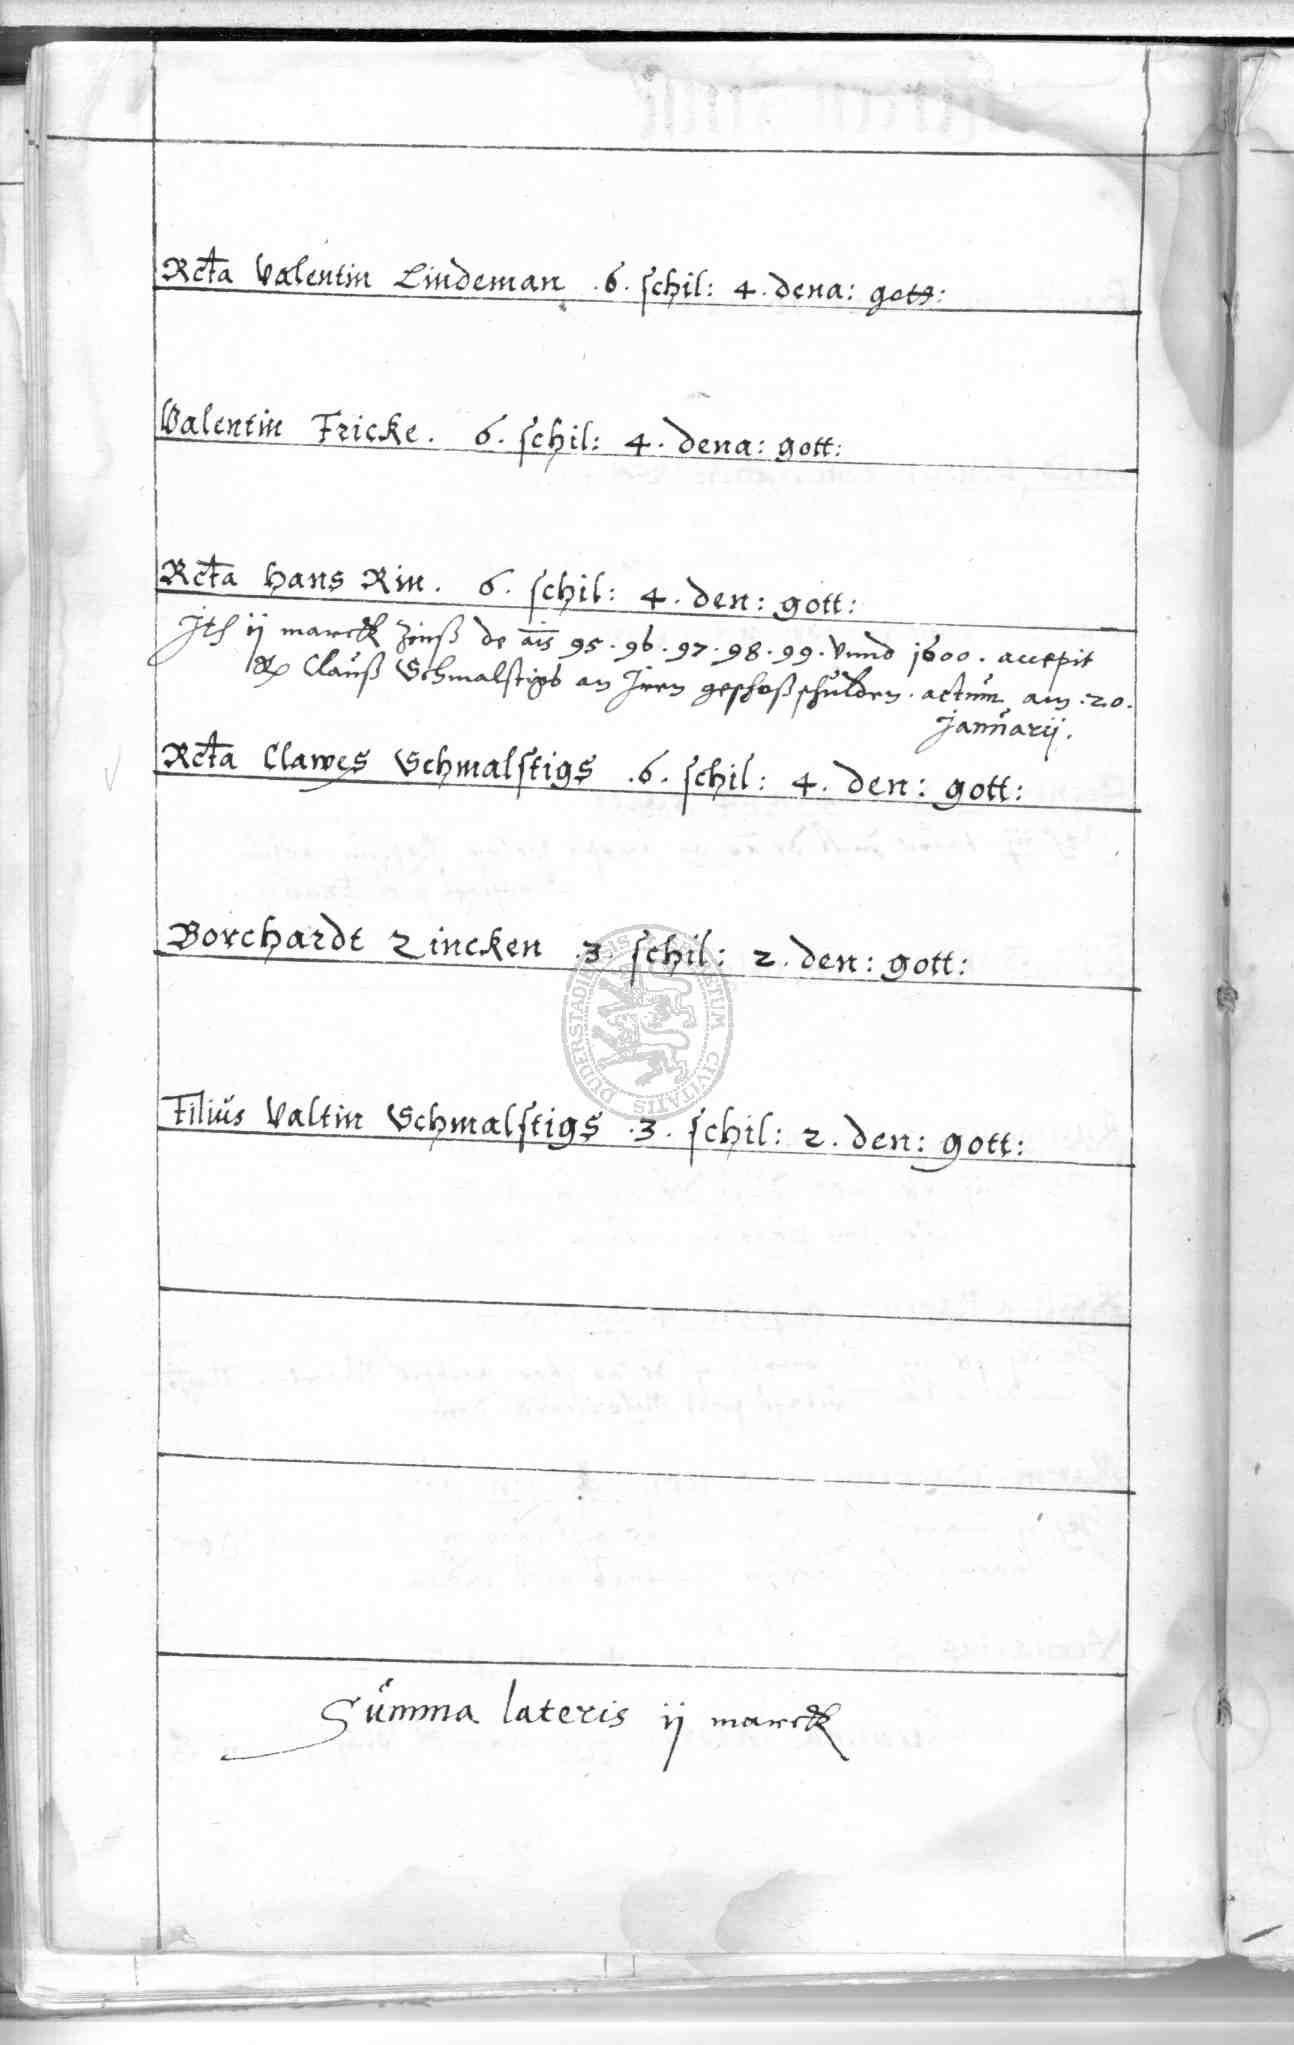 Rcta Valentin Lindeman . 6 . schil: 4 . dena: gott:
Valentin Fricke . 6 . schil: 4 . dena: gott:
Rcta Hans Rin . 6 . schil: 4 . den: gott:
ij marck Zinß de ais 95 . 96 . 97 . 98 . 99 . Vnnd 1600 . accepit
Clauß Schmalstigs an Iren geschoß schulden . actum am . 20 .
Jannarij .
Rcta Clawes Schmalstigs . 6 . schil: 4 . den: gott:
Borchardt Zincken . 3 . schil: 2 . den: gott:
Filius Valtin Schmalstigs . 3 . schil: 2 . den: gott:
Summa lateris ij marck
DUDERSTADIENSIS CIVITATIS